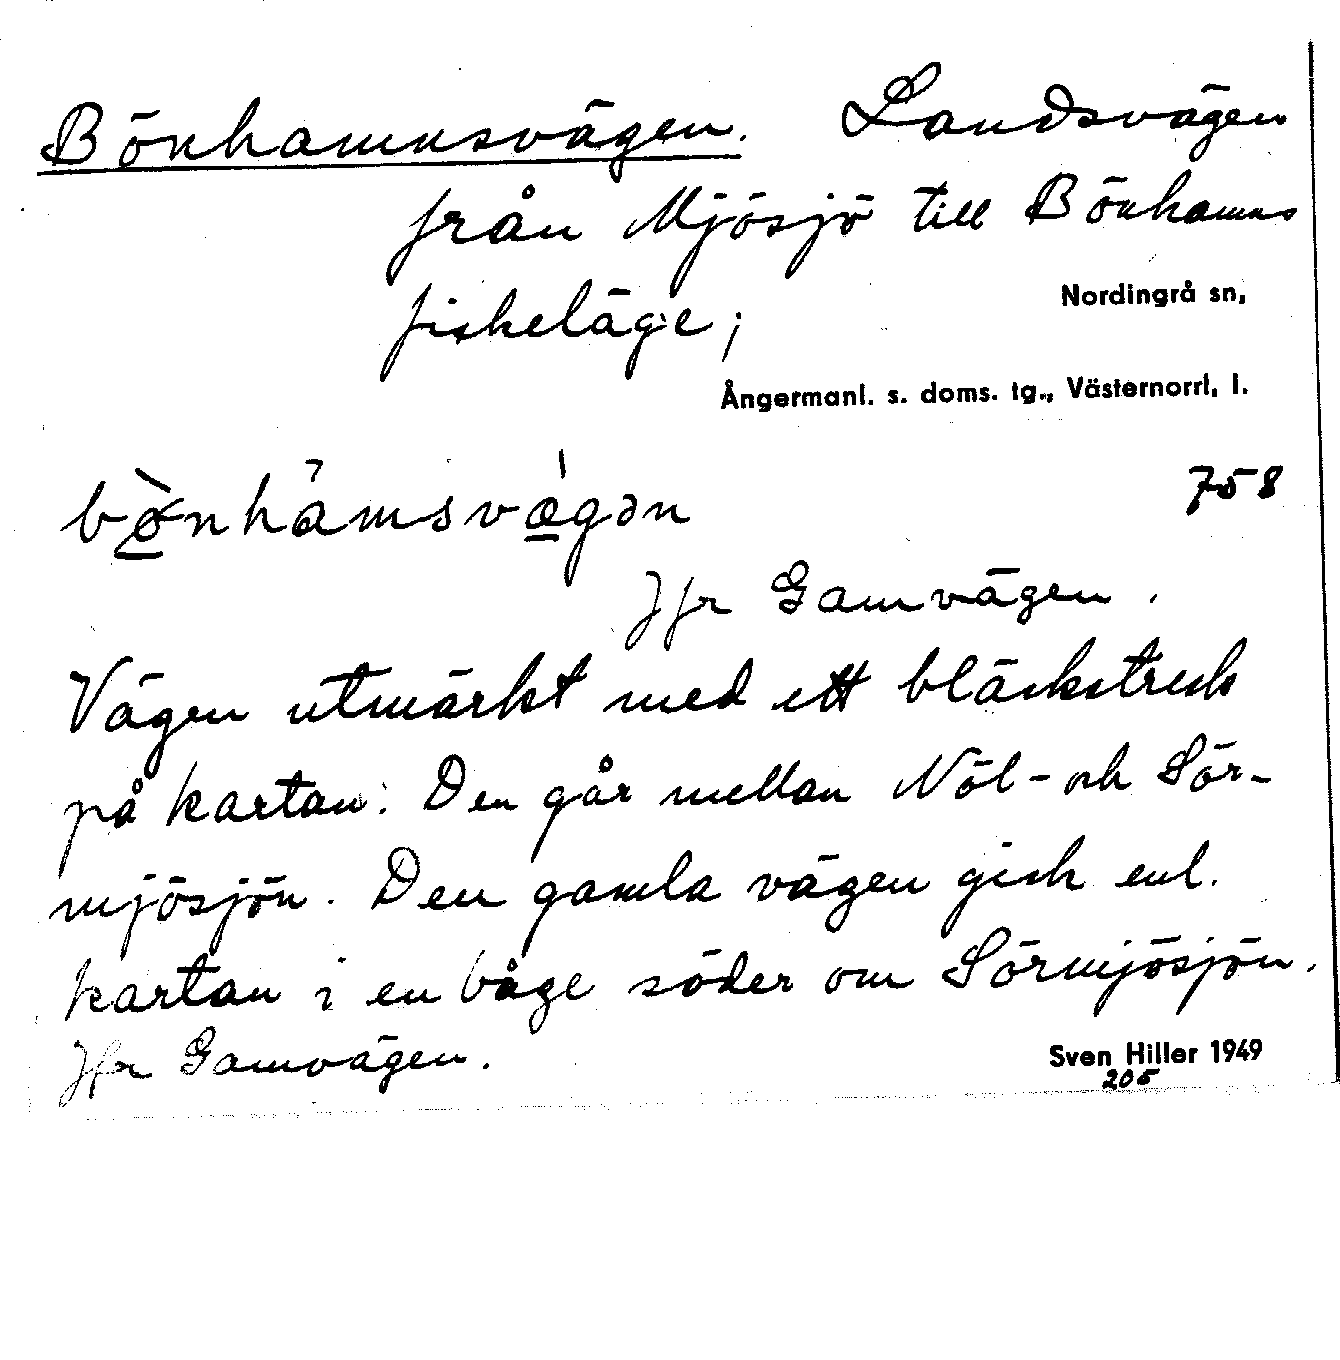 Bönhamnsvägen. Landsvägen
från Mjösjö till Bönhamns
fiskeläge;
Nordingrå sn,
Ångermanl. s. doms. tg., Västernorrl. l.
758
Jfr Gamvägen.
Vägen utmärkt med ett bläckstreck
på kartan. Den går mellan Nöl- och Sör-
mjösjön. Den gamla vägen gick enl.
kartan i en båge söder om Sörmjösjön.
Jfr Gamvägen.
Sven Hiller 1949
205